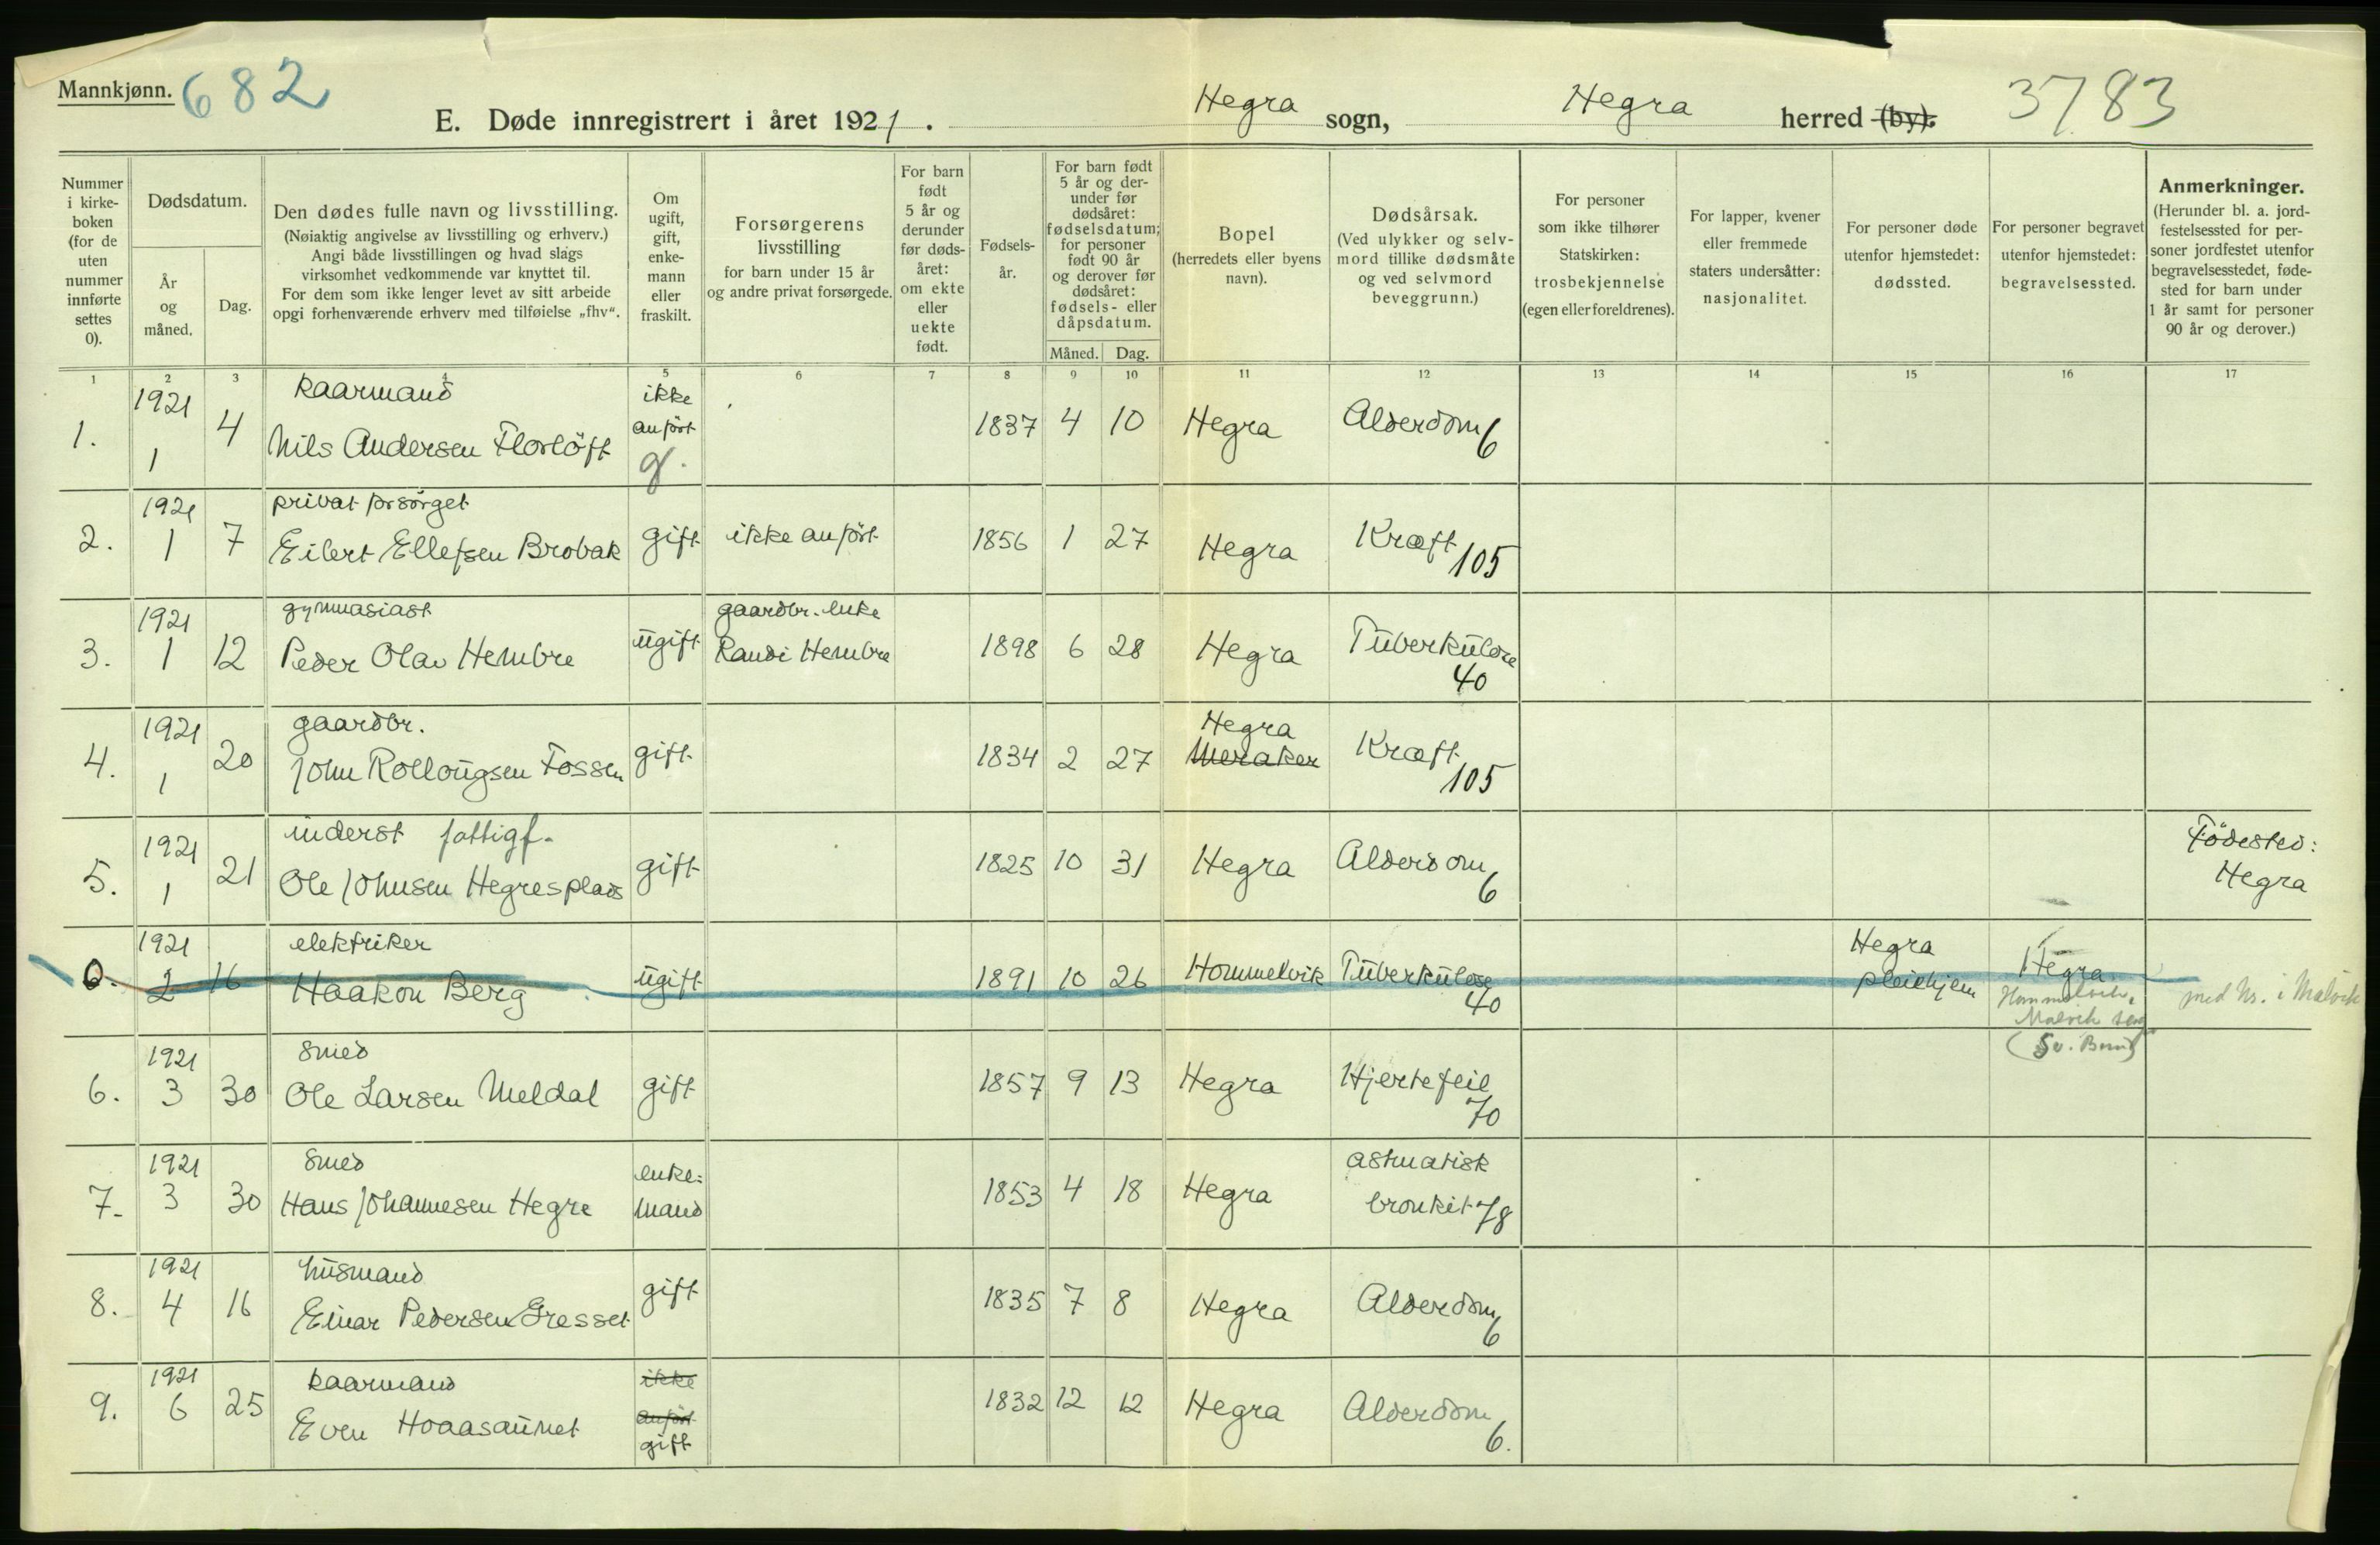 Mannkjønn. 682
E. Døde innregistrert i året 1921. Hegra sogn, Hegra herred (by). 3783
Nummer i kirke-boken (for de uten nummer innførte settes 0).
Dødsdatum.
År og måned.
Dag.
Den dødes fulle navn og livsstilling.
(Nøiaktig angivelse av livsstilling og erhverv.)
Angi både livsstillingen og hvad slags
virksomhet vedkommende var knyttet til.
For dem som ikke lenger levet av sitt arbeide
opgi forhenværende erhverv med tilføielse „fhv“.
Om ugift, gift, enke-mann eller fraskilt.
Forsørgerens
livsstilling
for barn under 15 år
og andre privat forsørgede.
For barn født 5 år og derunder før døds-året: om ekte eller uekte født.
Fødsels-år.
For barn født 5 år og der-under før dødsåret: fødselsdatum; for personer født 90 år og derover før dødsåret: fødsels- eller dåpsdatum.
Måned. Dag.
Bopel
(herredets eller byens navn).
Dødsårsak.
(Ved ulykker og selv-
mord tillike dødsmåte
og ved selvmord
beveggrunn.)
For personer
som ikke tilhører
Statskirken:
trosbekjennelse
(egen eller foreldrenes).
For lapper, kvener
eller fremmede
staters undersåtter:
nasjonalitet.
For personer døde
utenfor hjemstedet:
dødssted.
For personer begravet
utenfor hjemstedet:
begravelsessted.
Anmerkninger.
(Herunder bl. a. jord-
festelsessted for per-
soner jordfestet utenfor
begravelsesstedet, føde-
sted for barn under
1 år samt for personer
90 år og derover.)
1 2 3 4 5 6 7 8 9 10 11 12 13 14 15 16 17
1. 1921 1 4 kaarmand Nils Andersen Florløft ikke anført g. 1837 4 10 Hegra Alderdom 6
2. 1921 1 7 privat forsørget Eilert Ellefsen Brobak gift ikke anført 1856 1 27 Hegra Kræft 105
3. 1921 1 12 gymnasiast Peder Olav Hembre ugift gaardbr. enke Randi Hembre 1898 6 28 Hegra Tuberkulose 40
4. 1921 1 20 gaardbr. John Rollougsen Fossen gift 1834 2 27 Hegra Meraker Kræft 105
5. 1921 1 21 inderst fattigf. Ole Johnsen Hegresplads gift 1825 10 31 Hegra Alderdom 6 Fødested: Hegra
0. 1921 2 16 elektriker Haakon Berg ugift 1891 10 26 Hommelvik Tuberkulose 40 Hegra pleiehjem Hegra Hommelvik, Malvik med Nr. i Malvik
6. 1921 3 30 smed Ole Larsen Meldal gift 1857 9 13 Hegra Hjertefeil 70
7. 1921 3 30 smed Hans Johannesen Hegre enke: mand 1853 4 18 Hegra astmatisk bronkit 78
8. 1921 4 16 husmand Einar Pedersen Gresset gift 1835 7 8 Hegra Alderdom 6
9. 1921 6 25 kaarmand Even Hoaasaunet ikke anført gift 1832 12 12 Hegra Alderdom 6.